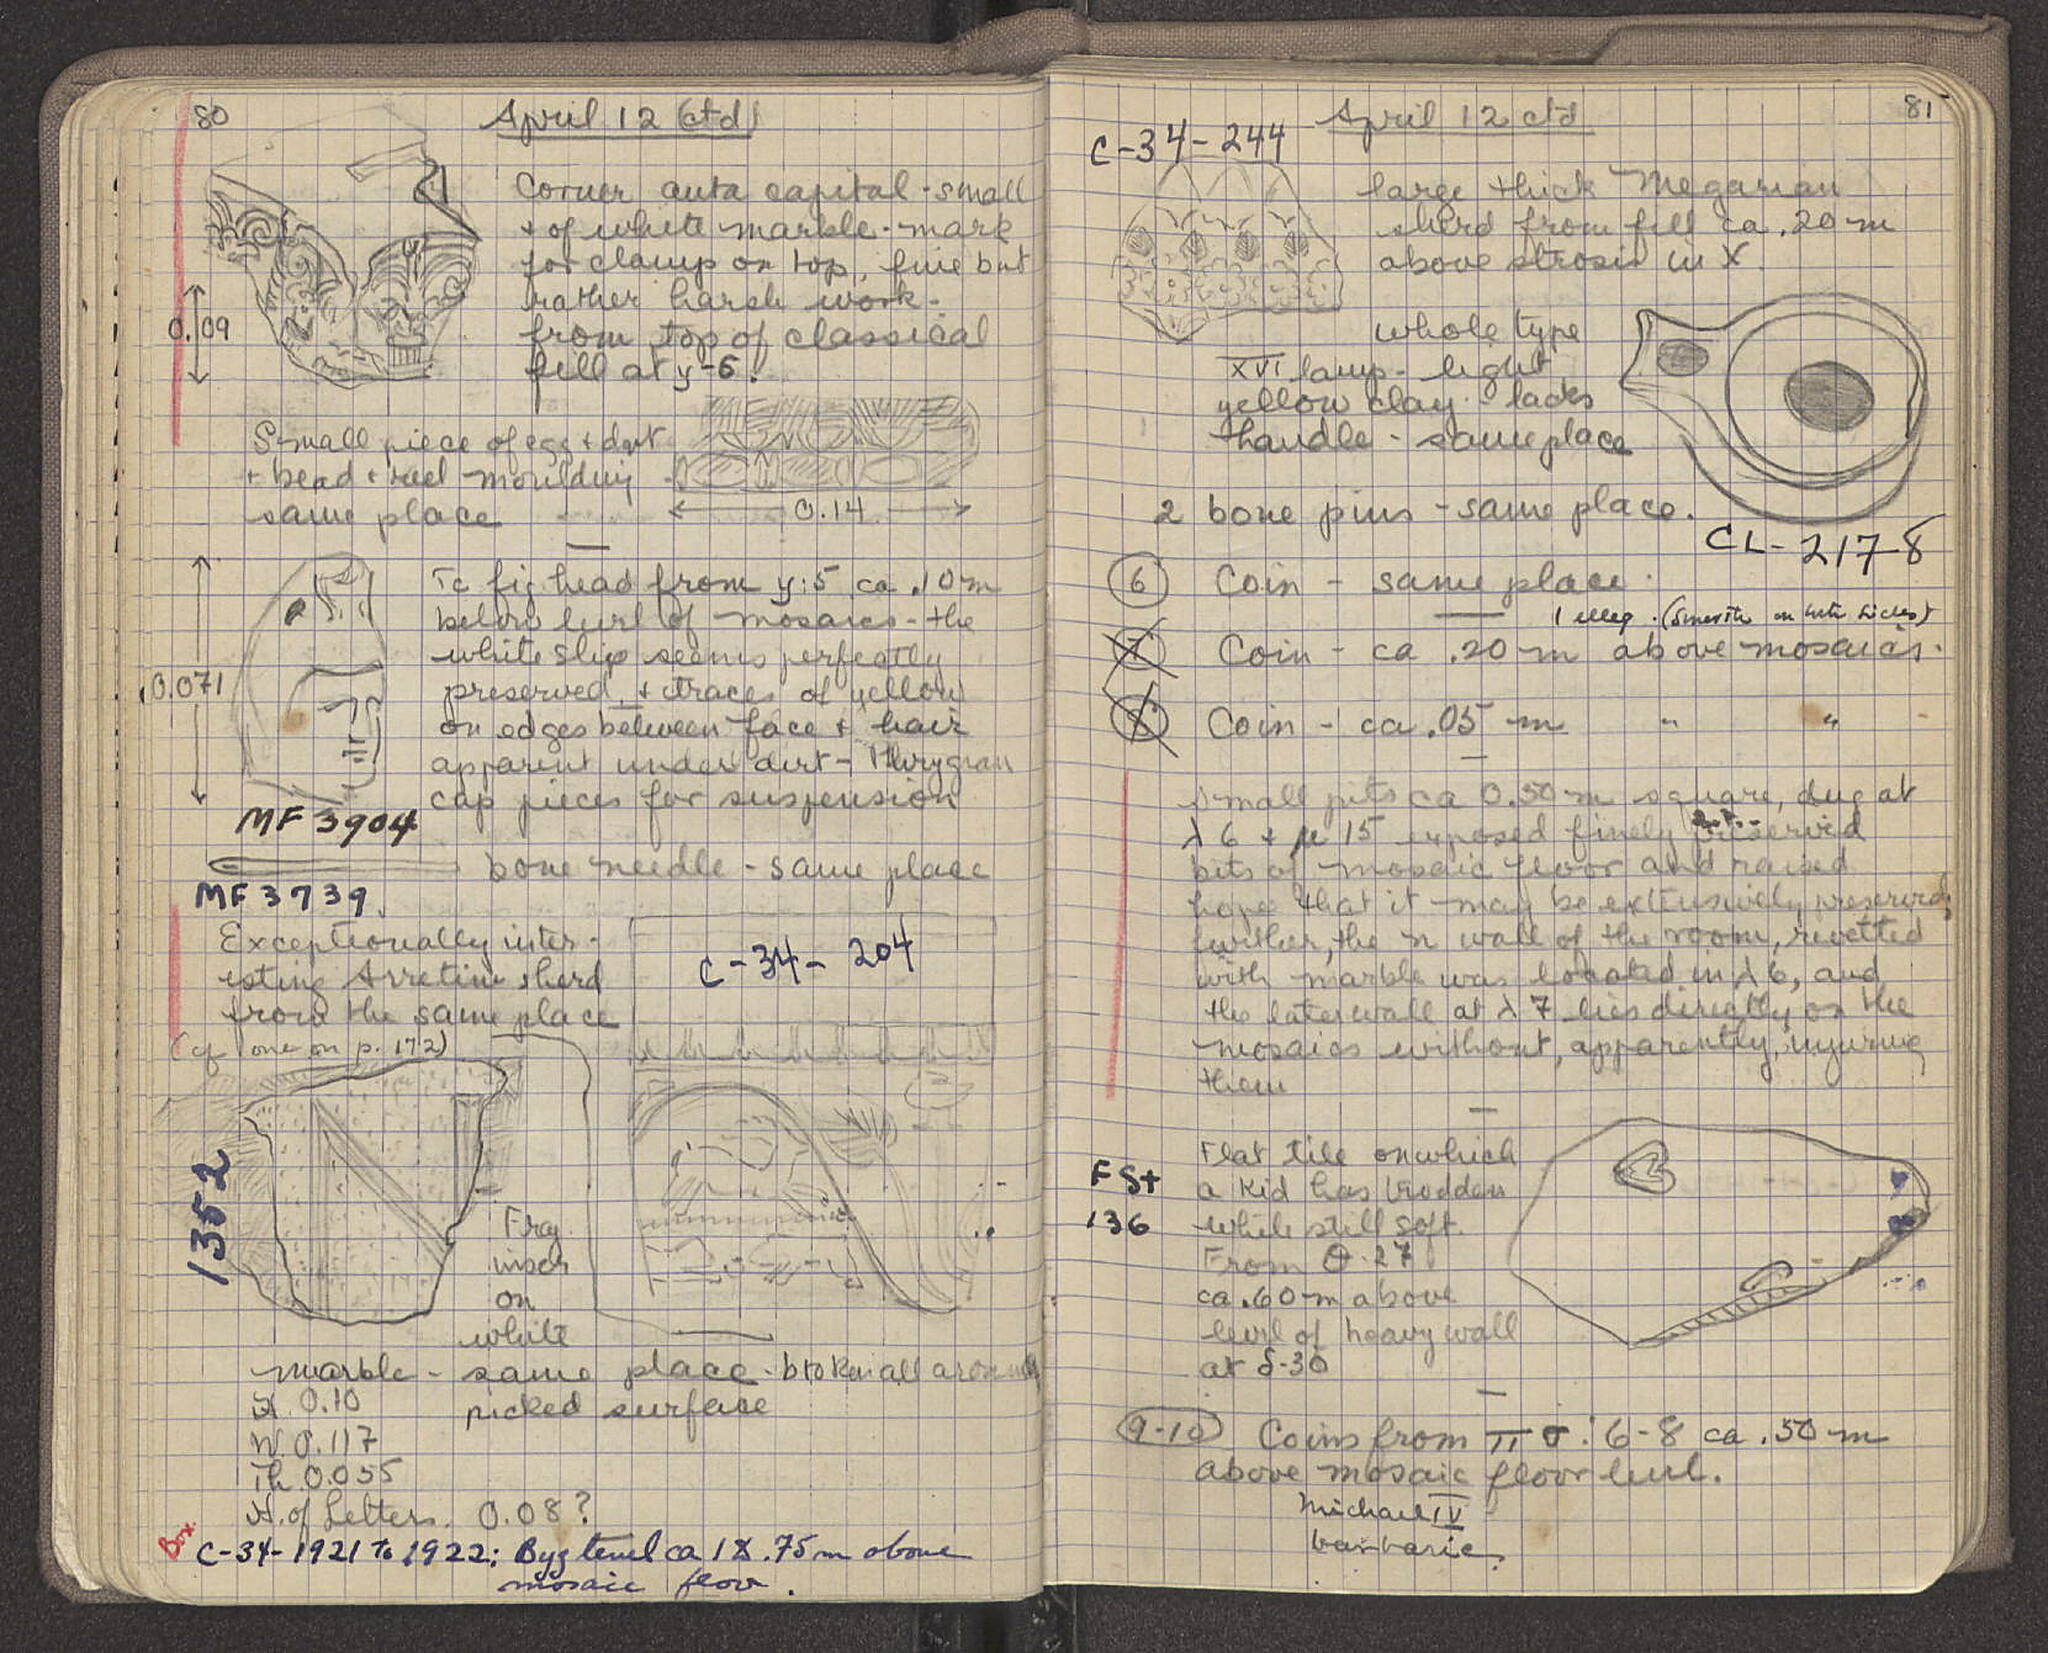 80
April 12 (ctd)
Corner anta capital - small
+ of white marble - mark
for clamp on top, fine but
rather harsh work -
from top of classical
fill at y-6.
0.09
Small piece of egg + dart
+ bead + reel moulding -
same place
0.14
Tc fig head from y:5 ca .10 m
below level of mosaics - the
white slip seems perfectly
preserved, + traces of yellow
on edges between face + hair
apparent under dirt - Phrygian
cap pieces for suspension
0.071
MF 3904
bone needle - same place
MF 3739
Exceptionally inter-
esting Arretine sherd
from the same place
(cf one on p. 172)
C-34-204
1352
Frag
inscr
on
white
marble - same place - broken all around
H. 0.10 picked surface
W. 0.117
Th. 0.055
H. of Letters. 0.08?
Box
C-34-1921 to 1922: Byz level ca .75 m above
mosaic floor.
81
April 12 ctd
C-34-244
large thick Megarian
sherd from fill ca .20 m
above strosis in X
whole type
XVI lamp - light
yellow clay - lacks
handle - same place
2 bone pins - same place.
CL-217-8
6 Coin - same place.
1 illeg. (Smooth on both sides)
7 Coin - ca .20 m above mosaics.
8 Coin - ca .05 m " "
Small pits ca 0.50 m square, dug at
λ 6 + μ 15 exposed finely preserved
bits of mosaic floor and raised
hope that it may be extensively preserved;
further, the n wall of the room, revetted
with marble was located in λ 6, and
the later wall at λ 7 lies directly on the
mosaics without, apparently, injuring
them
FSt
136
Flat tile on which
a kid has trodden
while still soft.
From Θ-27
ca .60 m above
level of heavy wall
at δ-30
9-10 Coins from π σ : 6-8 ca .50 m
above mosaic floor level.
Michael IV
barbaric